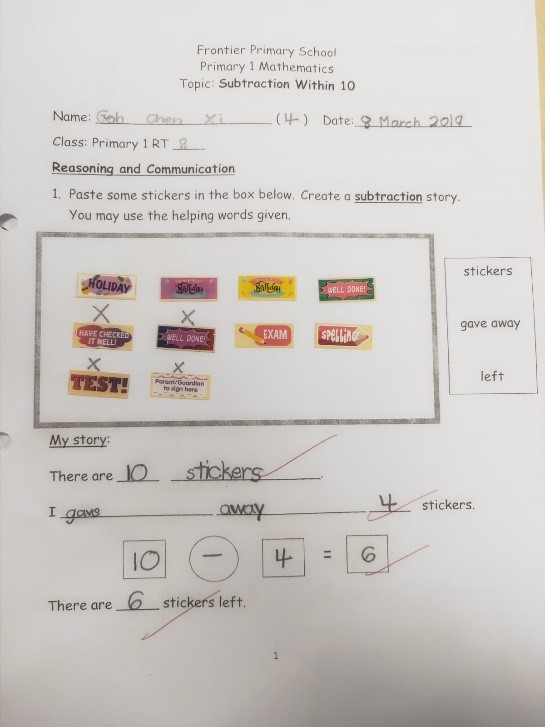 Frontier Primary School
Primary 1 Mathematics
Topic: Subtraction Within 10
Name: Goh Chen Xi (4) Date: 8 March 2019
Class: Primary 1 RT 8
Reasoning and Communication
1. Paste some stickers in the box below. Create a subtraction story.
You may use the helping words given.
HOLIDAY Birthday Birthday WELL DONE!
HAVE CHECKED IT WELL! WELL DONE! EXAM Spelling
TEST! Parent/Guardian to sign here
stickers
gave away
left
My story:
There are 10 stickers.
I gave away 4 stickers.
10 - 4 = 6
There are 6 stickers left.
1